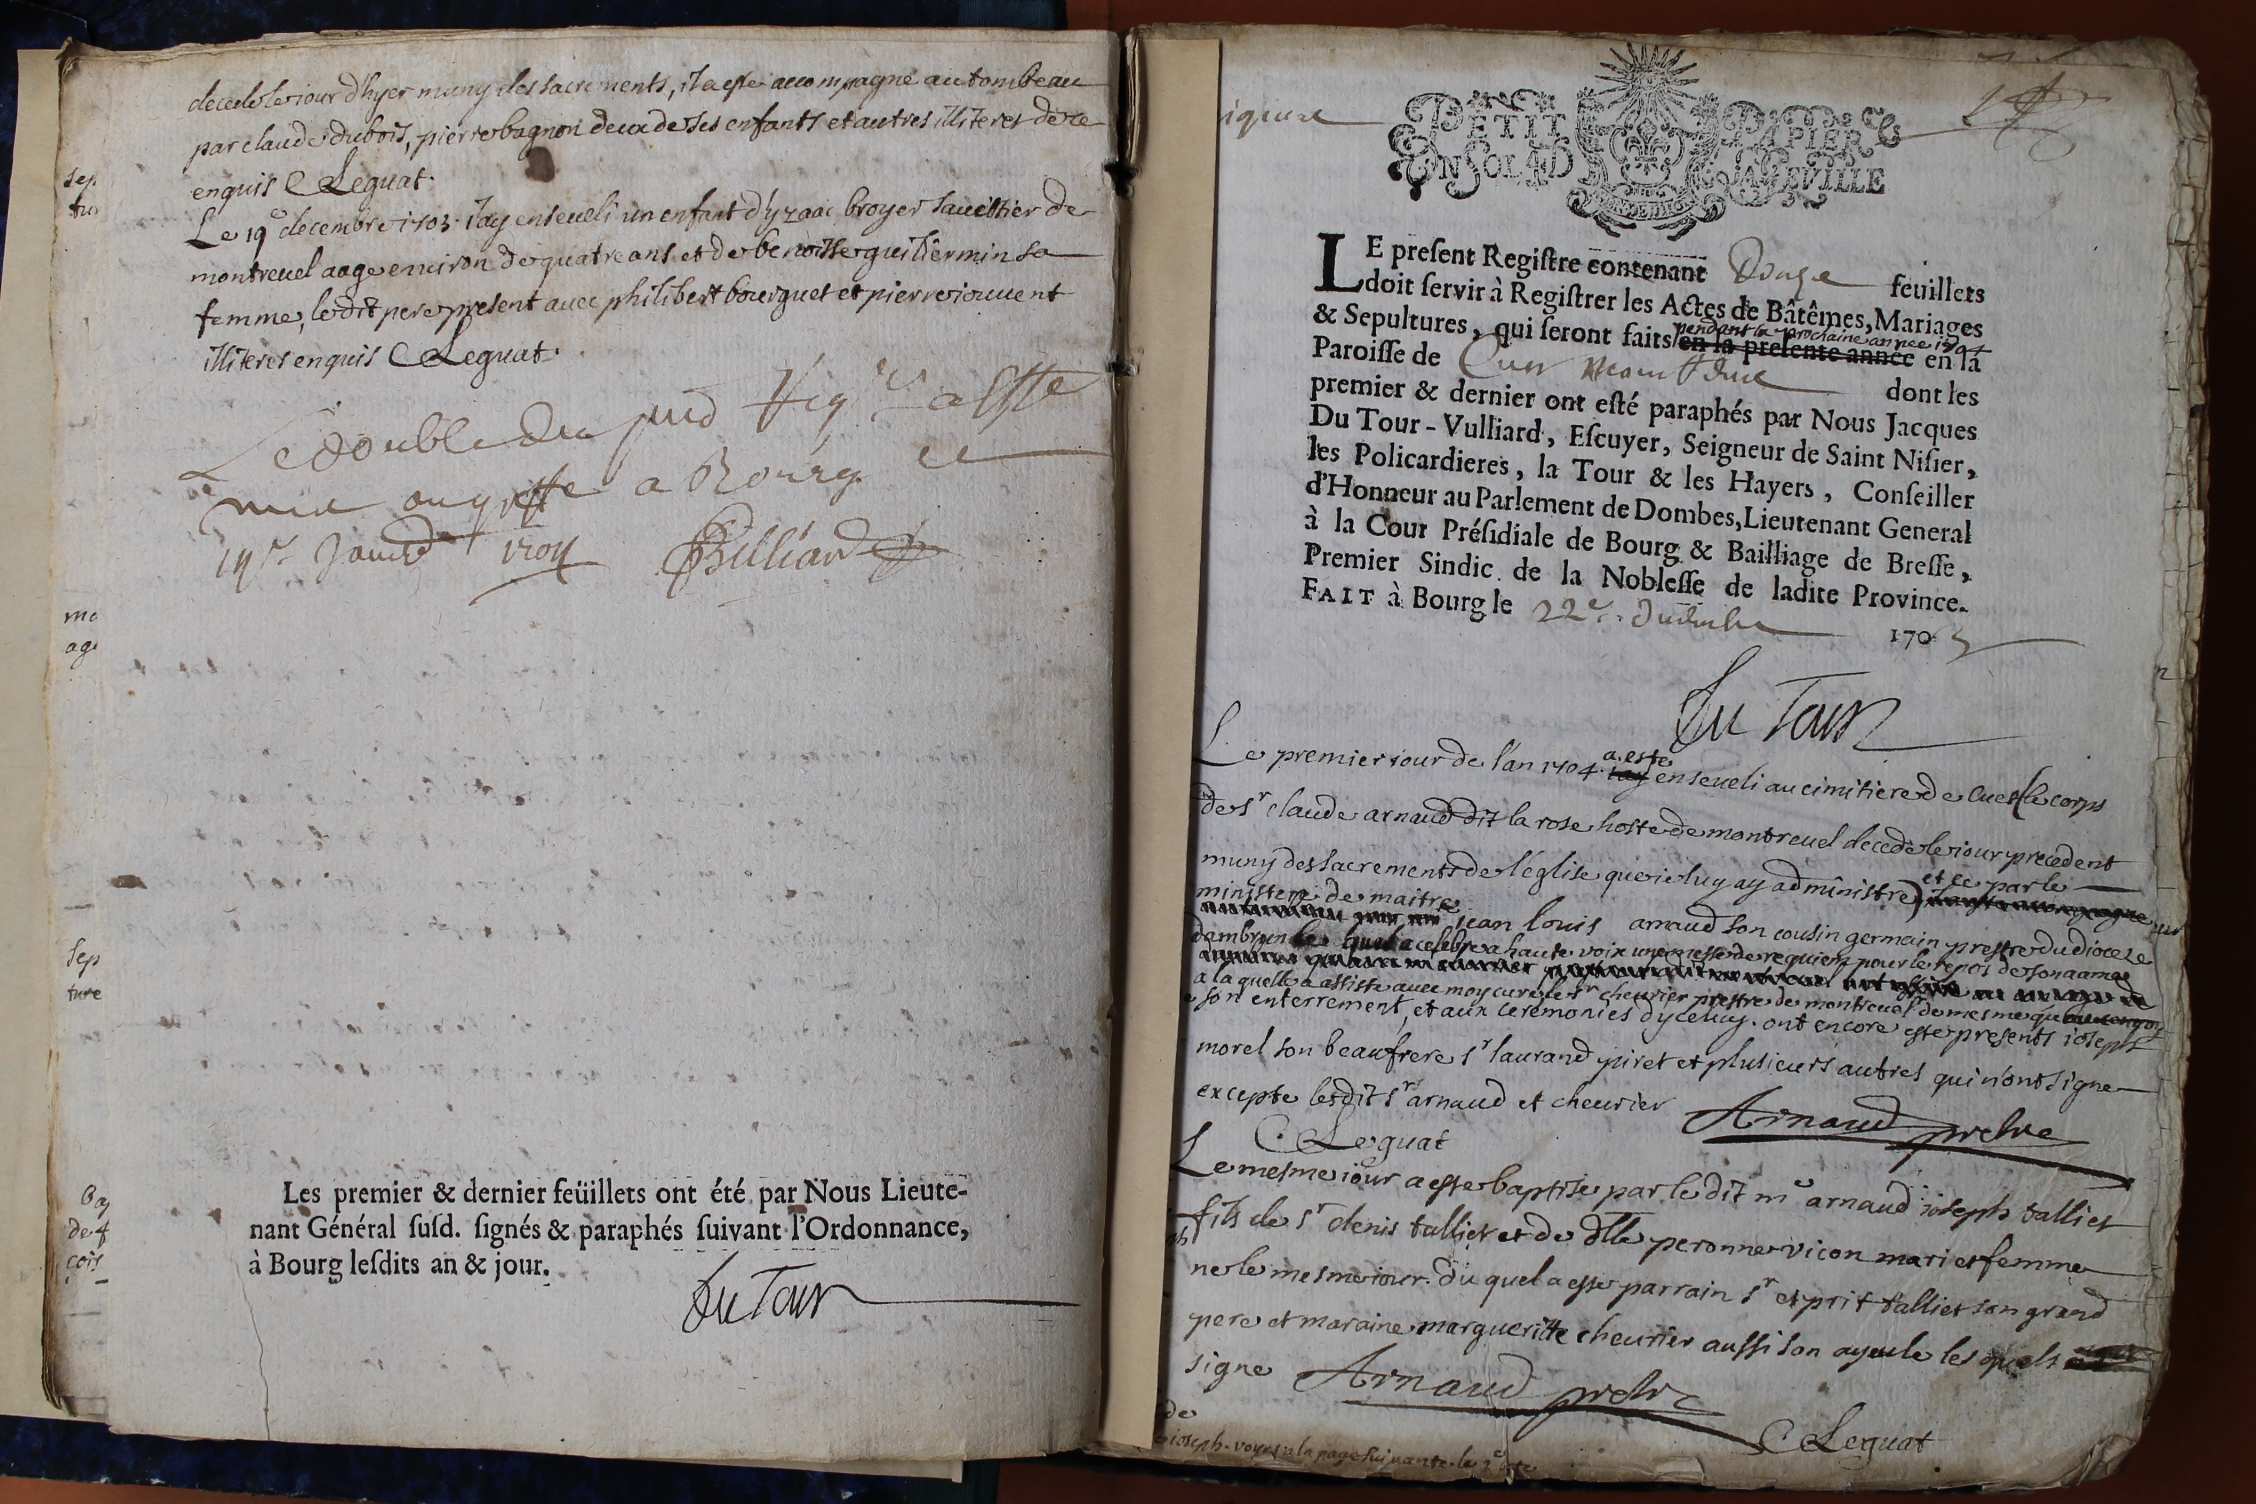 decede le iour d'hyer muny des sacrements, il a este accompagne au tombeau
par claude dubois, pierre bagnon deux de ses enfants et autres illiteres de ce
enquis C Leguat.
Le 19e decembre 1703. i'ay enseueli un enfant d'yzaac broyer sauettier de
montreuel aage enuiron de quatre ans et de benoiste guillermin sa
femme, le dit pere present auec philibert bourguet et pierre iouuent
illiteres enquis C Leguat.
Le double du pnd Regre a este
mis au greffe a Bourg ce
Janvr 1704 Billiard
Les premier & dernier feüillets ont été par Nous Lieute-
nant Général susd. signés & paraphés suivant l'Ordonnance,
à Bourg lesdits an & jour.
Du Tour
sep
tur
mo
age
sep
ture
de f
cois
PETIT PAPIER
UN SOL 4 D LA FEUILLE
LE present Registre contenant Douze feuillets
doit servir à Registrer les Actes de Bâtêmes, Mariages
& Sepultures, qui seront faits pendant la prochaine annee 1704 en la presente année en la
Paroisse de Cuet Montreuel dont les
premier & dernier ont esté paraphés par Nous Jacques
Du Tour-Vulliard, Escuyer, Seigneur de Saint Nisier,
les Policardieres, la Tour & les Hayers, Conseiller
d'Honneur au Parlement de Dombes, Lieutenant General
à la Cour Présidiale de Bourg & Bailliage de Bresse,
Premier Sindic de la Noblesse de ladite Province.
FAIT à Bourg le 22e. Decembre 1703
Du Tour
Le premier iour de l'an 1704. a este i'ay enseueli au cimitiere de Cuet le corps
de sr claude arnaud dit la rose hoste de montreuel decede le iour precedent
muny des sacrements de l'église que ie luy ay administre) et ce par le
ministere de maitre
jean louis arnaud son cousin germain prestre du dioceze
dambrun le quel a celebre a haute voix une messe de requiem pour le repos de son ame
a la quelle a assiste auec moy cure le sr cheurier prestre de montreuel de mesme qu
a son enterrement, et aux ceremonies d'yceluy. ont encore este presents ioseph
morel son beaufrere sr laurand piret et plusieurs autres qui n'ont signe
excepte lesdits sr arnaud et cheurier Arnaud prebre
C. Leguat
Le mesme iour a este baptise par le dit me arnaud ioseph tallier
fils de sr denis tallier et de dlle peronne vicon mari et femme
ne le mesme iour. du quel a este parrain sr esprit tallier son grand
pere et maraine marguerite cheurier aussi son ayeule les quels
signe Arnaud prebre
C Leguat
ioseph. voyes a la page suiuante le